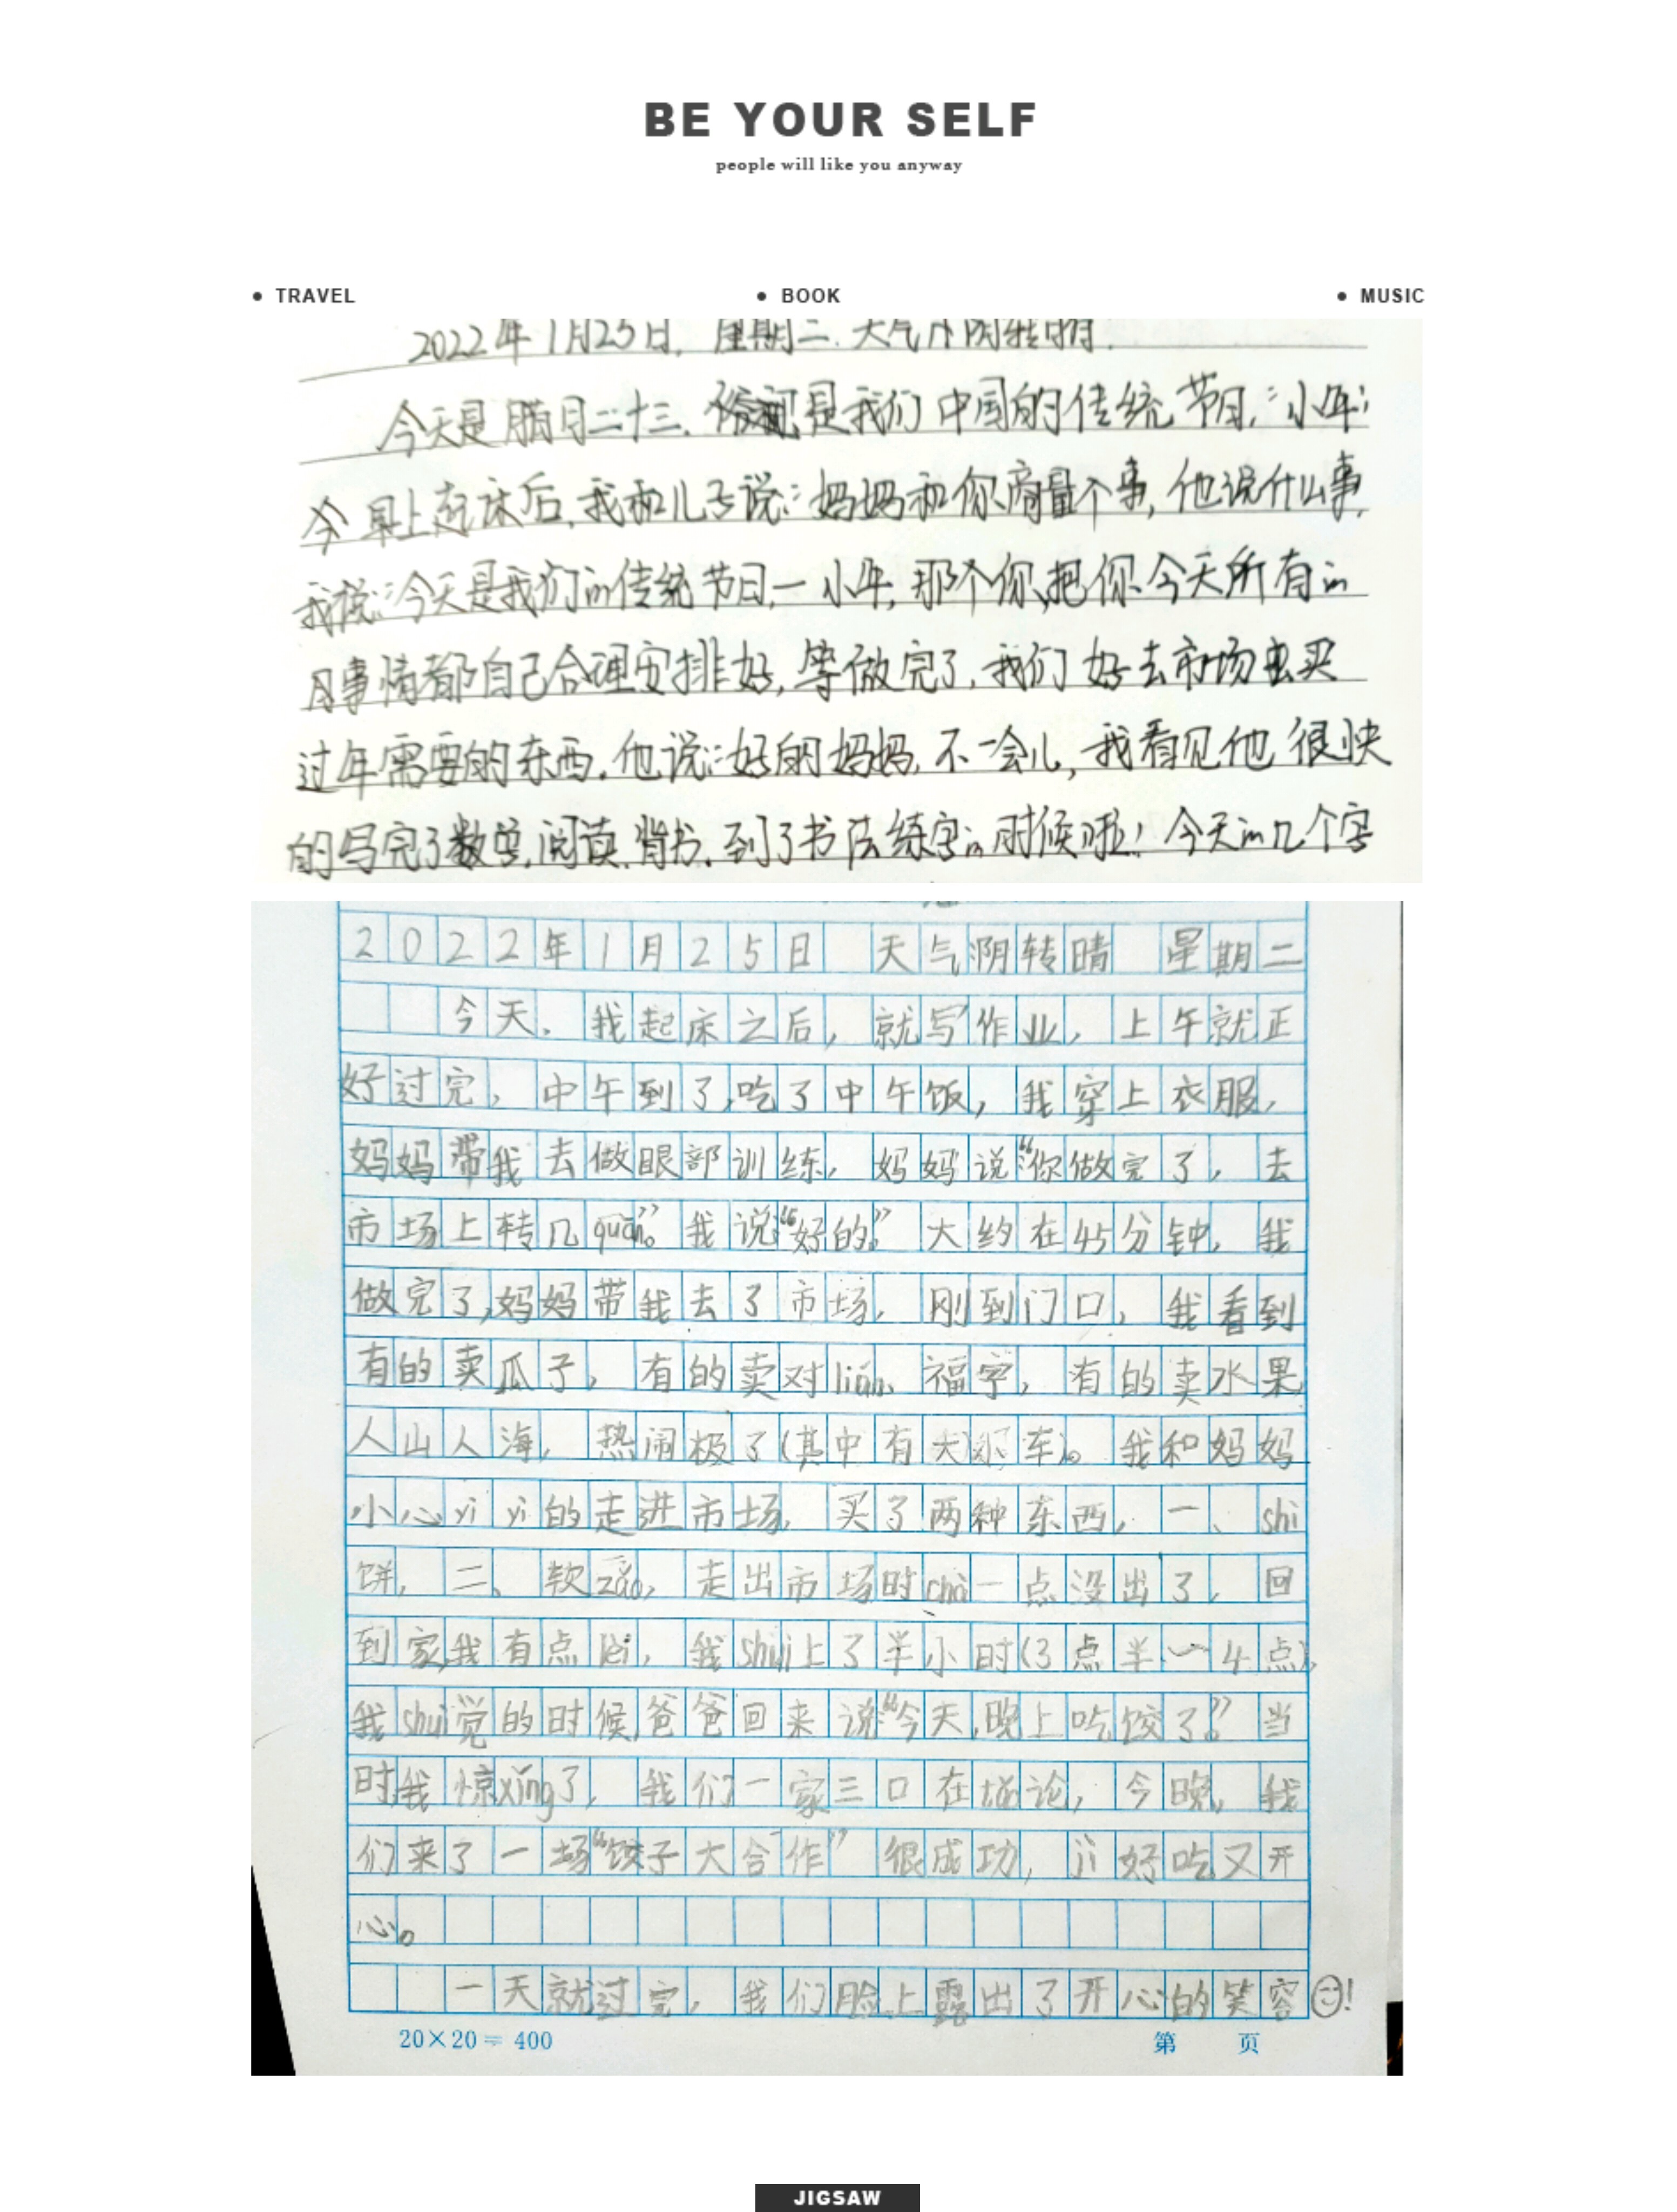 BE YOUR SELF
people will like you anyway
TRAVEL BOOK MUSIC
2022年1月25日. 星期二. 天气 阴转晴.
今天是腊月二十三. 是我们中国的传统节日,“小年”
今早上起床后,我和儿子说:“妈妈和你商量个事,他说什么事,
我说:“今天是我们的传统节日,一小年,那个你把你今天所有的
事情都自己合理安排好,等做完了,我们好去市场买
过年需要的东西.他说:“好的妈妈,不一会儿,我看见他很快
的写完了数学,阅读.背书.到了书法练字的时候啦!今天的几个字
2022年1月25日 天气阴转晴 星期二
今天,我起床之后,就写作业,上午就正
好过完,中午到了,吃了中午饭,我穿上衣服,
妈妈带我去做眼部训练,妈妈说:“你做完了,去
市场上转几quān。”我说:“好的。”大约在45分钟,我
做完了,妈妈带我去了市场,刚到门口,我看到
有的卖瓜子,有的卖对lián、福字,有的卖水果,
人山人海,热闹极了(其中有大 车)。我和妈妈
小心yì yì的走进市场,买了两种东西,一、shì
饼,二、软zǎo,走出市场时chà一点没出了,回
到家,我有点lèi,我shuì上了半小时(3点半~4点),
我shuì觉的时候,爸爸回来说:“今天,晚上吃饺了。”当
时,我惊xǐng了,我们一家三口在 论,今晚,我
们来了一场“饺子大合作”很成功,jì好吃又开
心。
一天就过完,我们脸上露出了开心的笑容!
20×20=400 第 页
JIGSAW